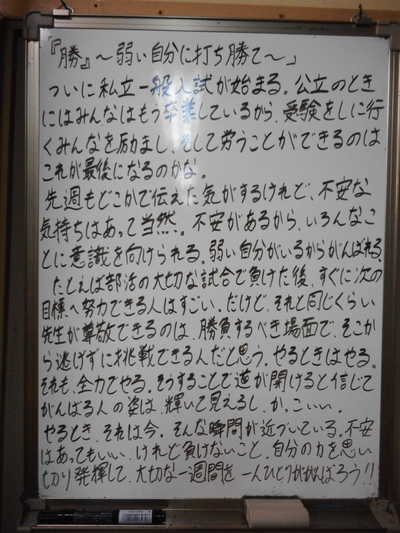 『勝』～弱い自分に打ち勝て～」
ついに私立一般入試が始まる。公立のとき
にはみんなはもう卒業しているから、受験をしに行
くみんなを励まし、そして労うことができるのは
これが最後になるのかな。
先週もどこかで伝えた気がするけれど、不安な
気持ちはあって当然。不安があるから、いろんなこ
とに意識を向けられる。弱い自分がいるからがんばれる。
たとえば部活の大切な試合で負けた後、すぐに次の
目標へ努力できる人はすごい。だけど、それと同じくらい
先生が尊敬できるのは、勝負するべき場面で、そこか
ら逃げずに挑戦できる人だと思う。やるときはやる。
それも、全力でやる。そうすることで道が開けると信じて
がんばる人の姿は、輝いて見えるし、かっこいい。
やるとき、それは今。そんな瞬間が近づいている。不安
はあってもいい、けれど負けないこと。自分の力を思い
切り発揮して、大切な一週間を一人ひとりががんばろう!!